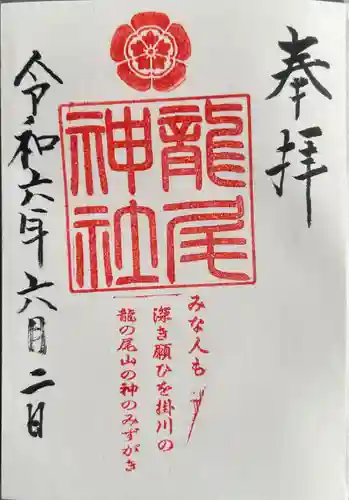 奉拝
龍尾
神社
みな人も
深き願ひを掛川の
龍の尾山の神のみずがき
令和六年六月二日